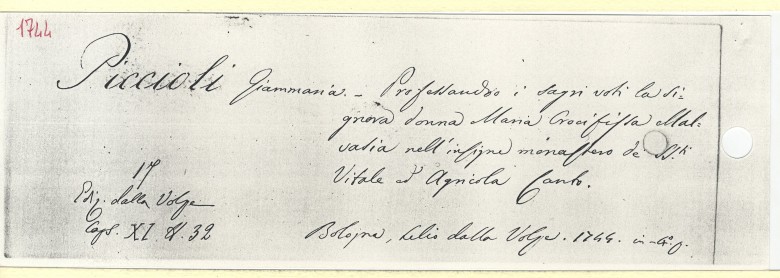 1744
Piccioli Giammaria. - Professandro i sagri voti la si-
gnora donna Maria Crocifissa Mal-
vasia nell'insigne monastero de' SS.ti
Vitale ed Agricola Canto.
17
Ediz. dalla Volpe
Caps. XI N. 32
Bologna, Lelio dalla Volpe. 1744. in-4°.